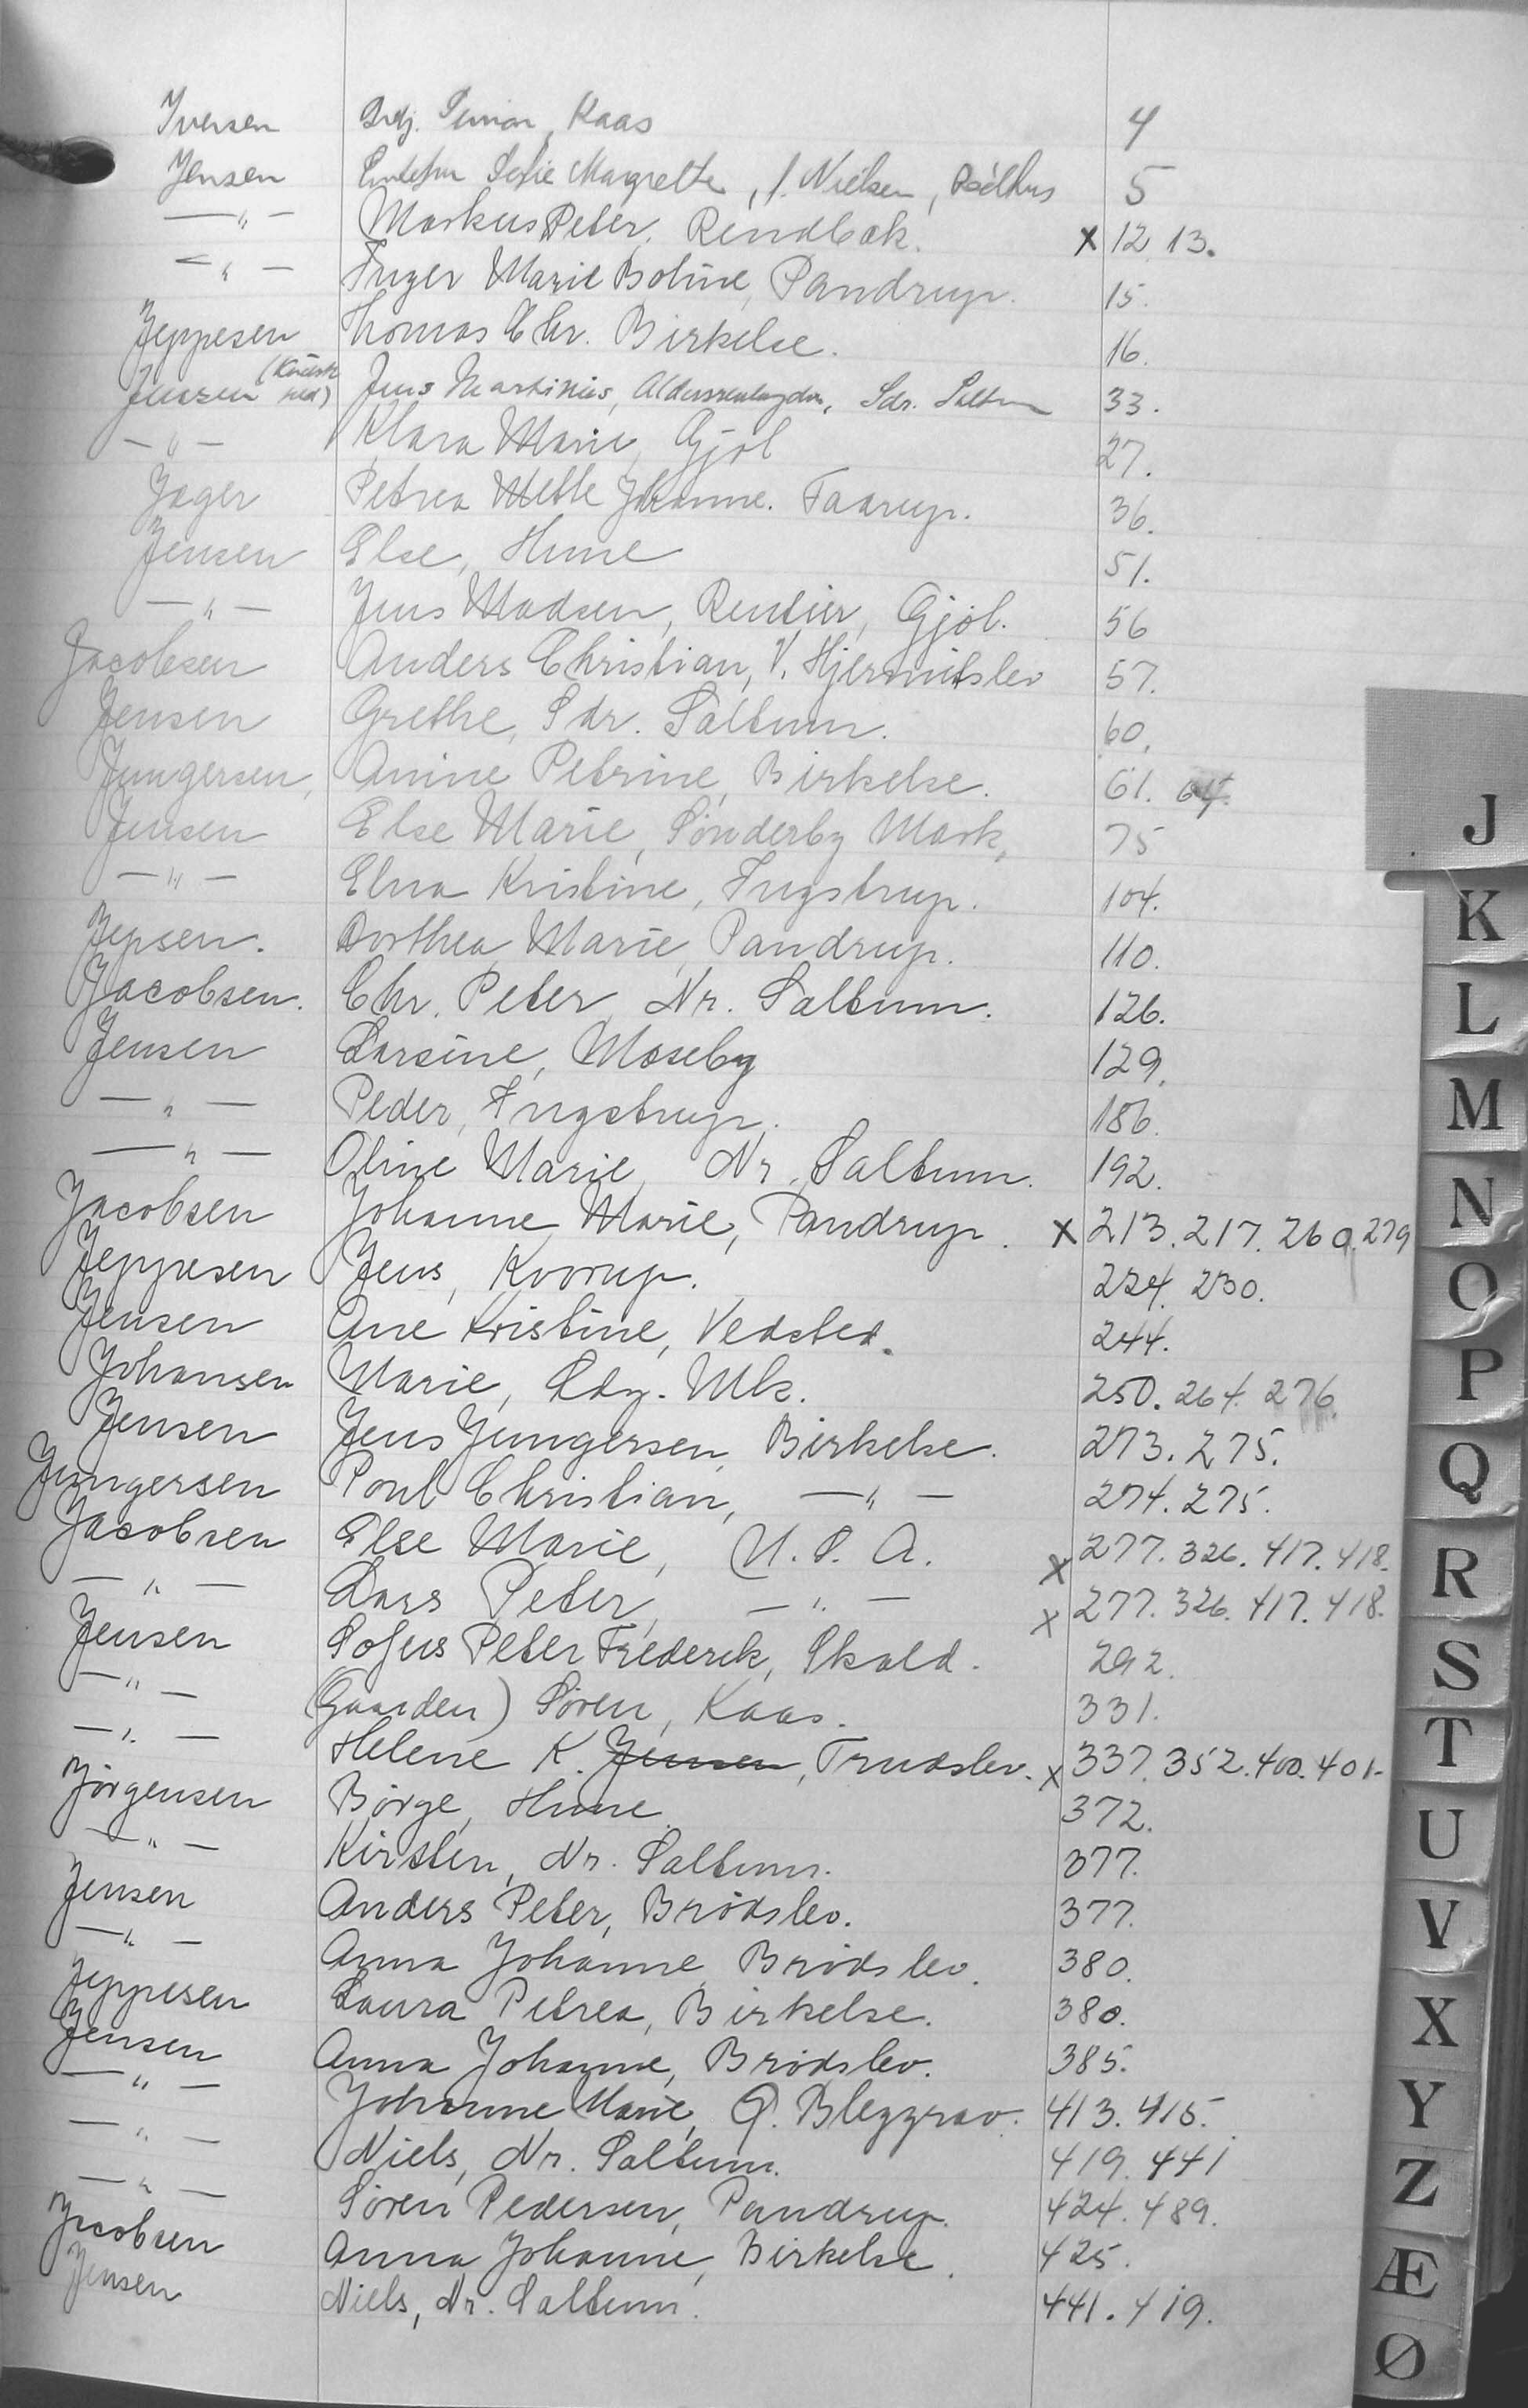 Iversen Arbj. Simon, Kaas 4
Jensen Enkefru Sofie Magrethe, f. Nielsen, 5
—"— Markus Peter, Rendbæk. x 12 13.
—"— Inger Marie Boline, Pandrup. 15.
Jeppesen Thomas Chr. Birkelse. 16.
Jensen Jens Martinus, Aldersrentenyder, Sdr. Saltum 33.
—"— Klara Marie, Gjøl 27.
Jager Petrea Mette Johanne. Taarup. 36.
Jensen Else, Hune 51.
—"— Jens Madsen, Rentier, Gjøl. 56
Jacobsen Anders Christian, V. Hjermitslev 57.
Jensen Grethe, Sdr. Saltum. 60.
Jungersen, Anine Petrine, Birkelse. 61. 64.
Jensen Else Marie, Sønderby Mark, 75
—"— Elna Kristine, Ingstrup. 104.
Jepsen. Dorthea Marie, Pandrup. 110.
Jacobsen. Chr. Peter, Nr. Saltum. 126.
Jensen Larsine, Moseby 129.
—"— Peder, Ingstrup. 186.
—"— Oline Marie, Nr. Saltum. 192.
Jacobsen Johanne Marie, Pandrup. x 213. 217. 260. 279
Jeppesen Jens, Kvorup. 224. 230.
Jensen Ane Kristine, Vedsted. 244.
Johansen Marie, Sdy. Mk. 250. 264. 276.
Jensen Jens Jungersen, Birkelse. 273. 275.
Jungersen Poul Christian, —"— 274. 275.
Jacobsen Else Marie, U.S.A. x 277. 326. 417. 418.
—"— Lars Peter, —"— x 277. 326. 417. 418.
Jensen Sofus Peter Frederik, Skald. 292.
—"— (Gaarden) Søren, Kaas. 331.
—"— Helene K. Jensen, Trudslev. x 337. 352. 400. 401.
Jörgensen Börge, Hune. 372.
—"— Kirsten, Nr. Saltum. 377.
Jensen Anders Peter, Brødslev. 377.
—"— Anna Johanne, Brødslev. 380.
Jeppesen Laura Petrea, Birkelse. 380.
Jensen Anna Johanne, Brødslev. 385.
—"— Johanne Marie, G. Bleggrav. 413. 415.
—"— Niels, Nr. Saltum. 419. 441
—"— Søren Pedersen, Pandrup. 424. 489.
Jacobsen Anna Johanne, Birkelse. 425.
Jensen Niels, Nr. Saltum. 441. 419.
J
K
L
M
N
O
P
Q
R
S
T
U
V
X
Y
Z
Æ
Ø